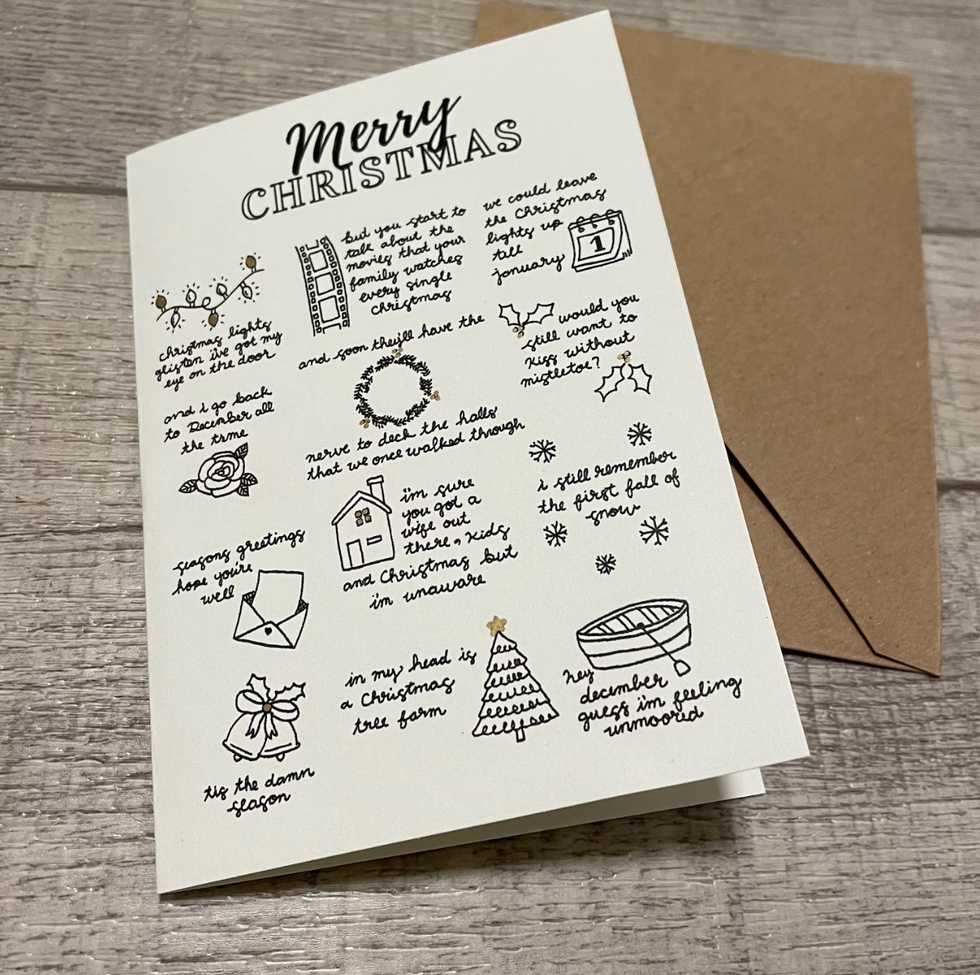 Merry
CHRISTMAS
christmas lights
glisten i've got my
eye on the door
but you start to
talk about the
movies that your
family watches
every single
christmas
we could leave
the Christmas
lights up
till
january
1
and i go back
to December all
the time
and soon they'll have the
nerve to deck the halls
that we once walked through
would you
still want to
kiss without
mistletoe?
seasons greetings
hope you're
well
i'm sure
you got a
wife out
there, kids
and Christmas but
i'm unaware
i still remember
the first fall of
snow
tis the damn
season
in my head is
a Christmas
tree farm
hey
december
guess i'm feeling
unmoored